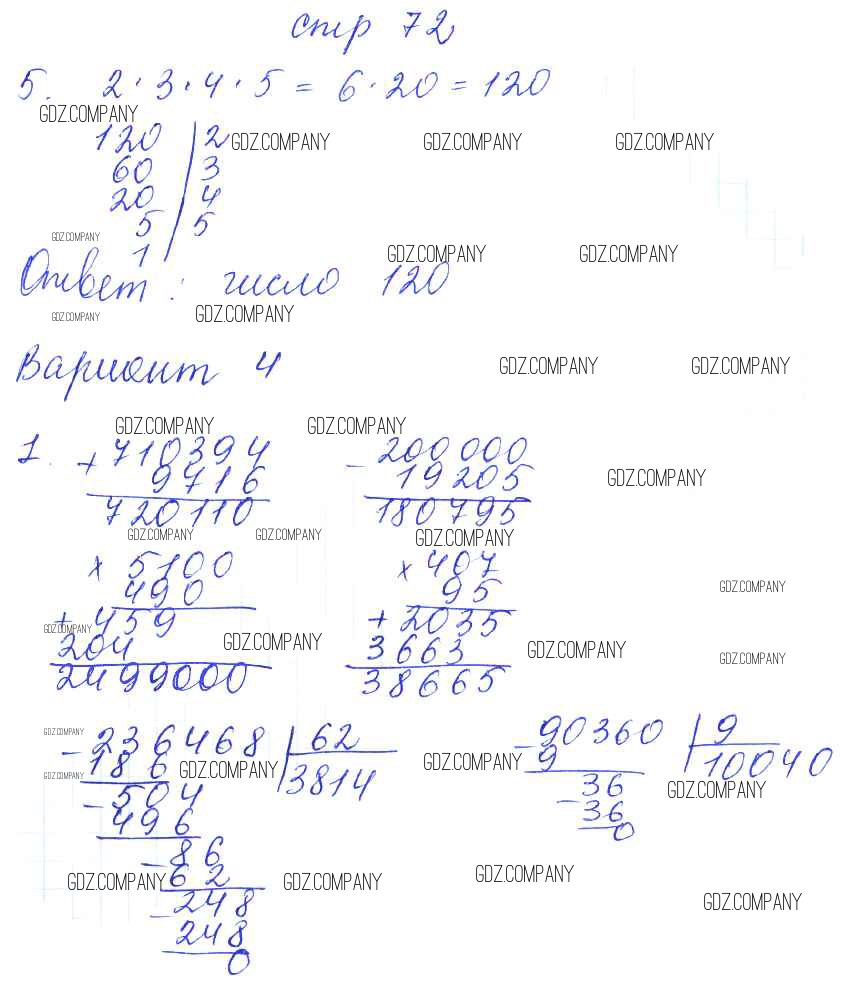 стр 72
5. 2 · 3 · 4 · 5 = 6 · 20 = 120
GDZ.COMPANY
120 | 2 GDZ.COMPANY GDZ.COMPANY GDZ.COMPANY
60 | 3
20 | 4
5 | 5
GDZ.COMPANY
1 GDZ.COMPANY GDZ.COMPANY
Ответ: число 120
GDZ.COMPANY GDZ.COMPANY
Вариант 4 GDZ.COMPANY GDZ.COMPANY
GDZ.COMPANY GDZ.COMPANY
1. + 710394 - 200000
9716 19205 GDZ.COMPANY
720110 180795
GDZ.COMPANY GDZ.COMPANY GDZ.COMPANY
× 5100 × 407
490 95 GDZ.COMPANY
+ 459 + 2035
GDZ.COMPANY
204 GDZ.COMPANY 3663 GDZ.COMPANY GDZ.COMPANY
2499000 38665
GDZ.COMPANY
- 236468 | 62 - 90360 | 9
186 GDZ.COMPANY 3814 GDZ.COMPANY 9 10040
GDZ.COMPANY
- 504 36 GDZ.COMPANY
496 - 36
0
- 86
GDZ.COMPANY 62 GDZ.COMPANY GDZ.COMPANY
- 248 GDZ.COMPANY
248
0